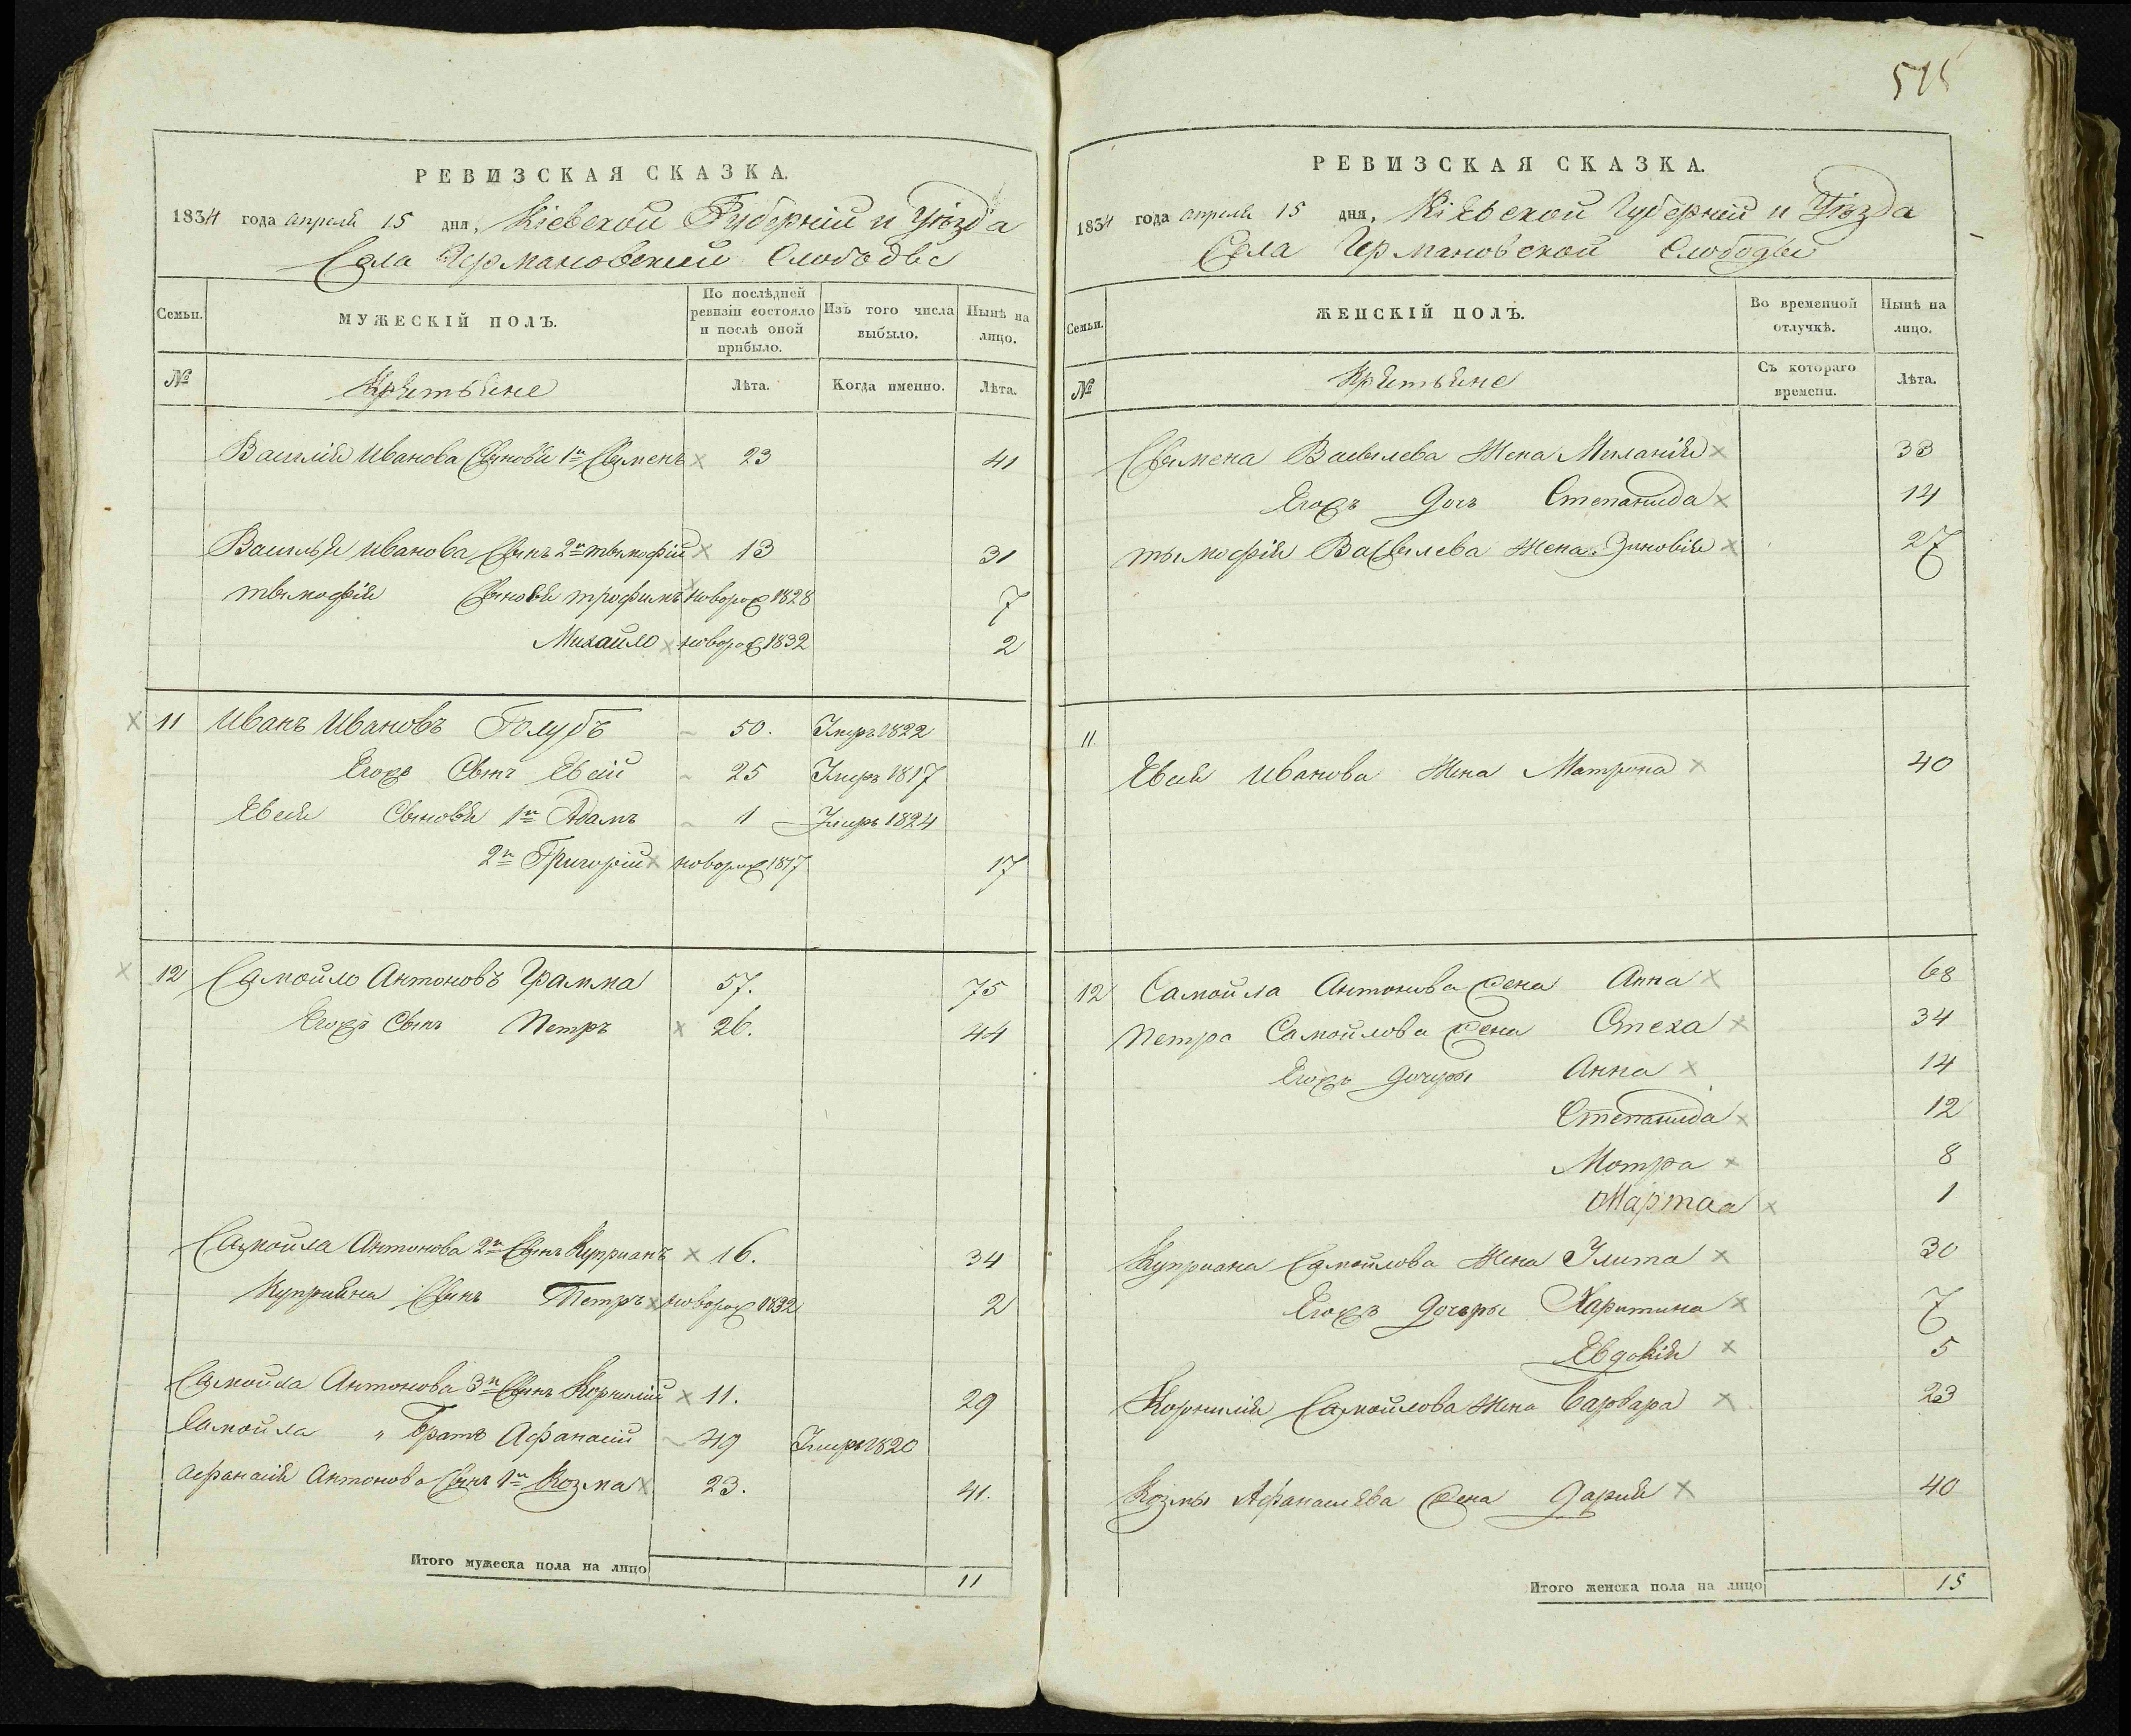 РЕВИЗСКАЯ СКАЗКА.
1834 года апреля 15 дня, Кіевской Губерніи и Уѣзда
Села Германовской Слободы
Семьи.
МУЖЕСКІЙ ПОЛЪ.
По послѣдней ревизіи состояло и послѣ оной прибыло.
Изъ того числа выбыло.
Нынѣ на лицо.
№
Лѣта.
Когда именно.
Лѣта.
Василія Иванова Сыновья 1й Сымемъ 23 41
Василья Иванова Сынъ 2й тымофій 13 31
тымофія Сыновья трофимъ новорож 1828 7
Михайло новорож 1832 2
11 Иванъ Ивановъ Голубъ 50. Умеръ 1822
Егожъ Сынъ Евсій 25 Умеръ 1817
Евсія Сыновья 1й Адамъ 1 Умеръ 1824
2й Григорій новорож 1817 17
12 Самойло Антоновъ Грамма 57. 75
Егожъ Сынъ Петръ 26. 44
Самойла Антонова 2й Сынъ Куприанъ 16. 34
Куприяна Сынъ Петръ новорож 1832 2
Самойла Антонова 3й Сынъ Корнилій 11. 29
Самойла " Братъ Афанасій 49 Умеръ 1820
Афанасія Антонова Сынъ 1й Козма 23. 41.
Итого мужеска пола на лицо 11
РЕВИЗСКАЯ СКАЗКА.
1834 года апреля 15 дня, Кіевской Губерніи и Уѣзда
Села Германовской Слободы
Семьи.
ЖЕНСКІЙ ПОЛЪ.
Во временной отлучкѣ.
Нынѣ на лицо.
№
Съ котораго времени.
Лѣта.
Сымена Васылева Жена Миланія 33
Егожъ Дочь Степанида 14
тымофія Васылева Жена Зиновія 27
11.
Евсія Иванова Жена Матрона 40
12 Самойла Антонова жена Анна 68
Петра Самойлова жена Стеха 34
Егожъ Дочеры Анна 14
Степанида 12
Мотра 8
Марта 1
Куприана Самойлова Жена Улита 30
Егожъ Дочеры Харитина 7
Евдокія 5
Корнилія Самойлова Жена Варвара 23
Козмы Афанасіева жена Дарія 40
Итого женска пола на лицо 15